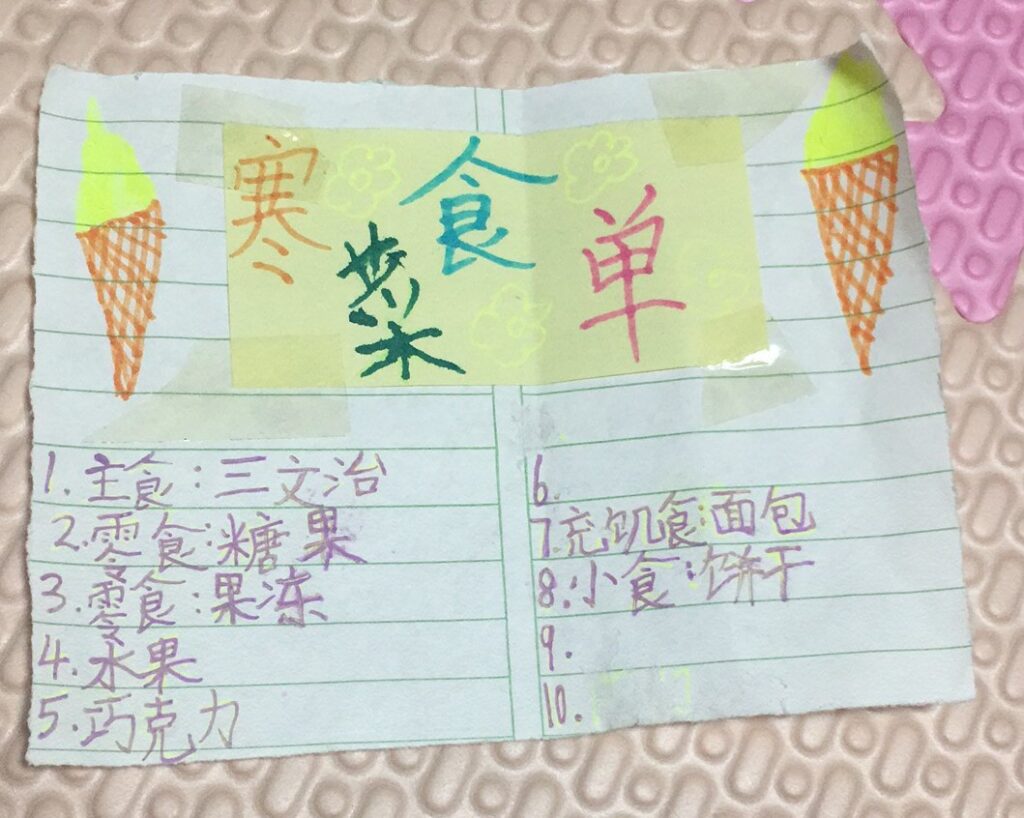 寒食菜单
1.主食:三文治
2.零食:糖果
3.零食:果冻
4.水果
5.巧克力
6.
7.充饥食:面包
8.小食:饼干
9.
10.